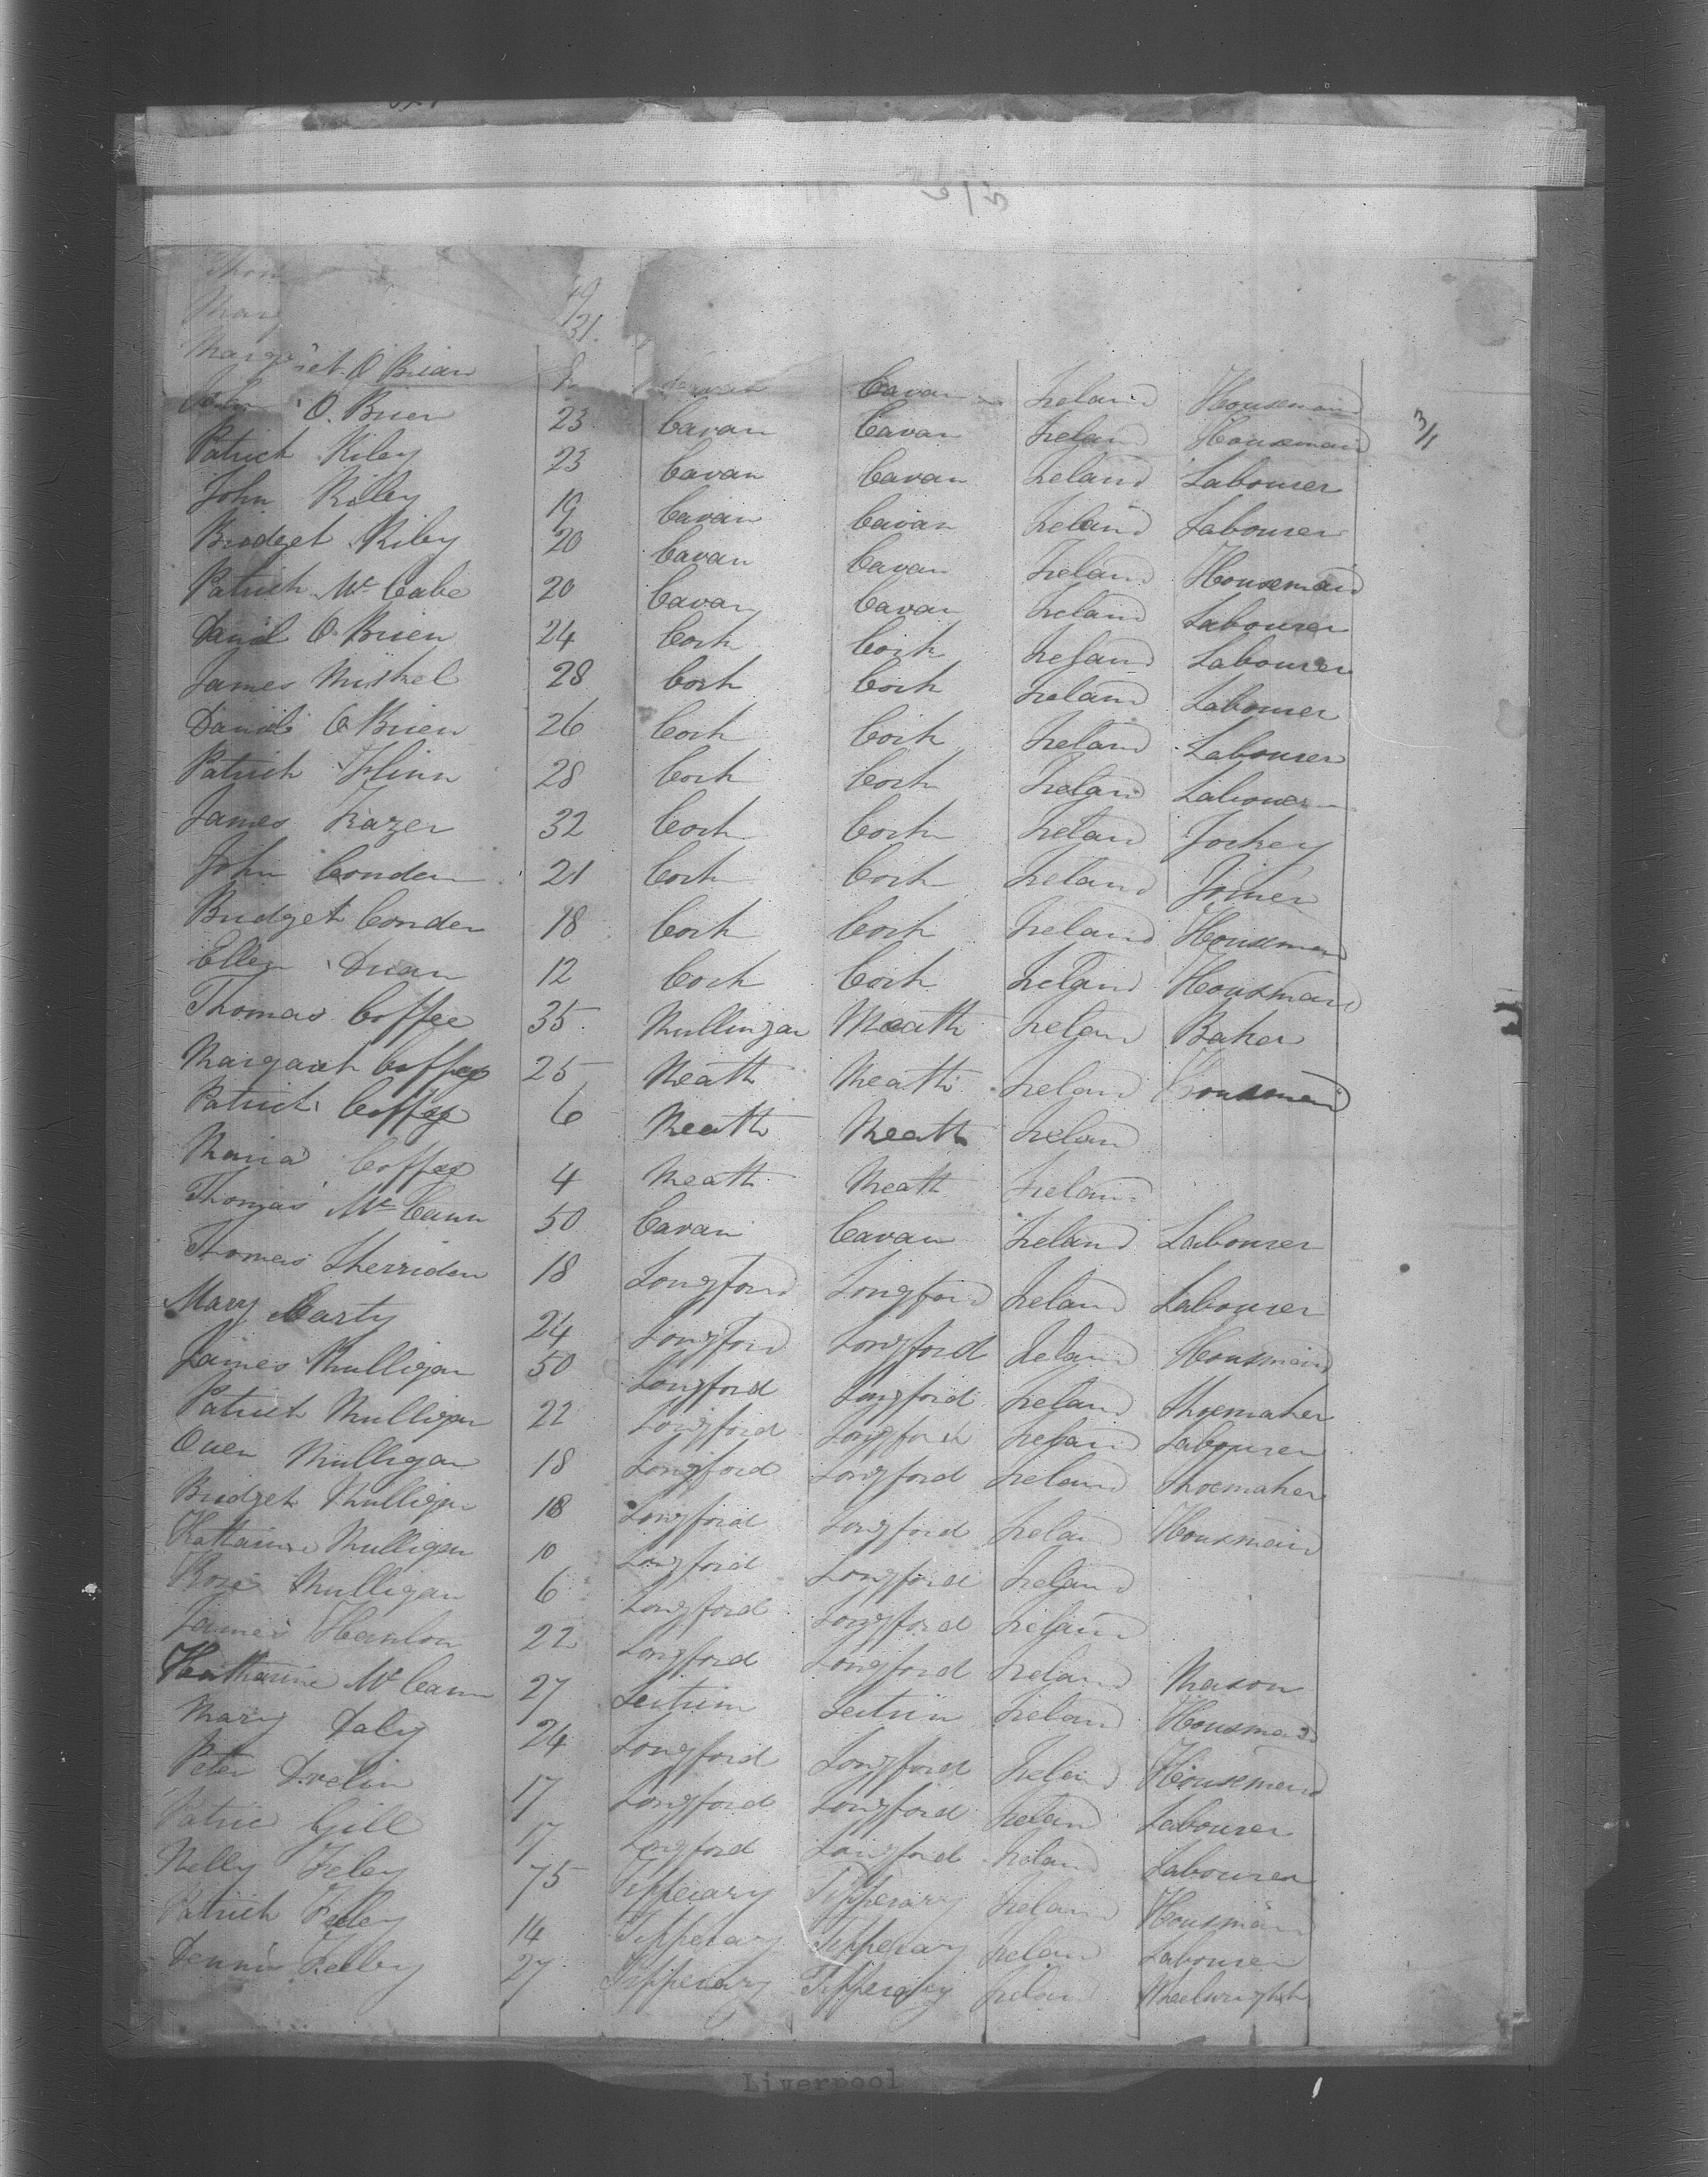 Thom
Mar 49
31
Margret O Brian Cavan Ireland Housemaid
John O. Brien 23 Cavan Cavan Ireland Housemaid 3/1
Patrick Riley 23 Cavan Cavan Ireland Labourer
John Rilley 19 Cavan Cavan Ireland Labourer
Bridget Riley 20 Cavan Cavan Ireland Housemaid
Patrick Mc Cabe 20 Cavan Cavan Ireland Labourer
Daniel O Brien 24 Cork Cork Ireland Labourer
James Miskel 28 Cork Cork Ireland Labourer
Daniel O Brien 26 Cork Cork Ireland Labourer
Patrick Flinn 28 Cork Cork Ireland Labourer
James Frazer 32 Cork Cork Ireland Jockey
John Conden 21 Cork Cork Ireland Joiner
Bridget Conden 18 Cork Cork Ireland Housmaid
Ellen Duan 12 Cork Cork Ireland Housmaid
Thomas Coffee 35 Mullingar Meath Ireland Baker
Margaret Coffey 25 Meath Meath Ireland Housmaid
Patrick Coffey 6 Meath Meath Ireland
Maria Coffey 4 Meath Meath Ireland
Thomas Mc Cann 50 Cavan Cavan Ireland Labourer
Thomas Sherriden 18 Longford Longford Ireland Labourer
Mary Carty 24 Longford Longford Ireland Housmaid
James Mulligan 50 Longford Longford Ireland Shoemaker
Patrick Mulligan 22 Longford Longford Ireland Labourer
Owen Mulligan 18 Longford Longford Ireland Shoemaker
Bridget Mulligan 18 Longford Longford Ireland Housmaid
Kattarine Mulligan 10 Longford Longford Ireland
Rose Mulligan 6 Longford Longford Ireland
James Hanlon 22 Longford Longford Ireland Mason
Katharine Mc Cann 27 Leitrim Leitrim Ireland Housmaid
Mary Daly 24 Longford Longford Ireland Housemaid
Peter Develin 17 Longford Longford Ireland Labourer
Patric Gill 17 Longford Longford Ireland Labourer
Nelly Feley 75 Tipperary Tipperary Ireland Housmaid
Patrick Feeley 14 Tipperary Tipperary Ireland Labourer
Dennis Feeley 27 Tipperary Tipperary Ireland Wheelwright
Liverpool